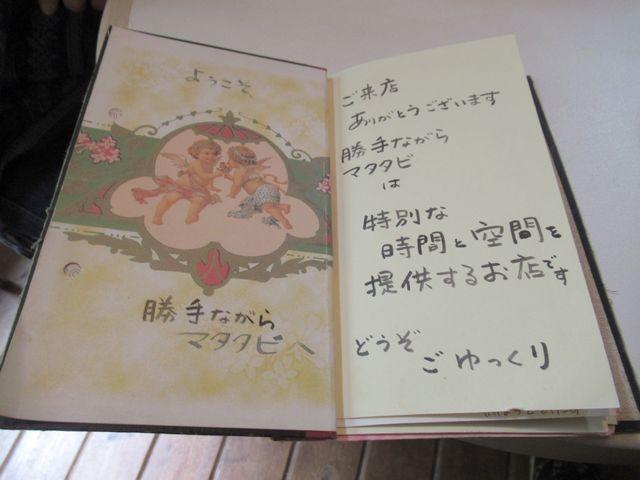 ようこそ
勝手ながら
マタタビへ
ご来店
ありがとうございます
勝手ながら
マタタビ
は
特別な
時間と空間を
提供するお店です
どうぞ
ごゆっくり